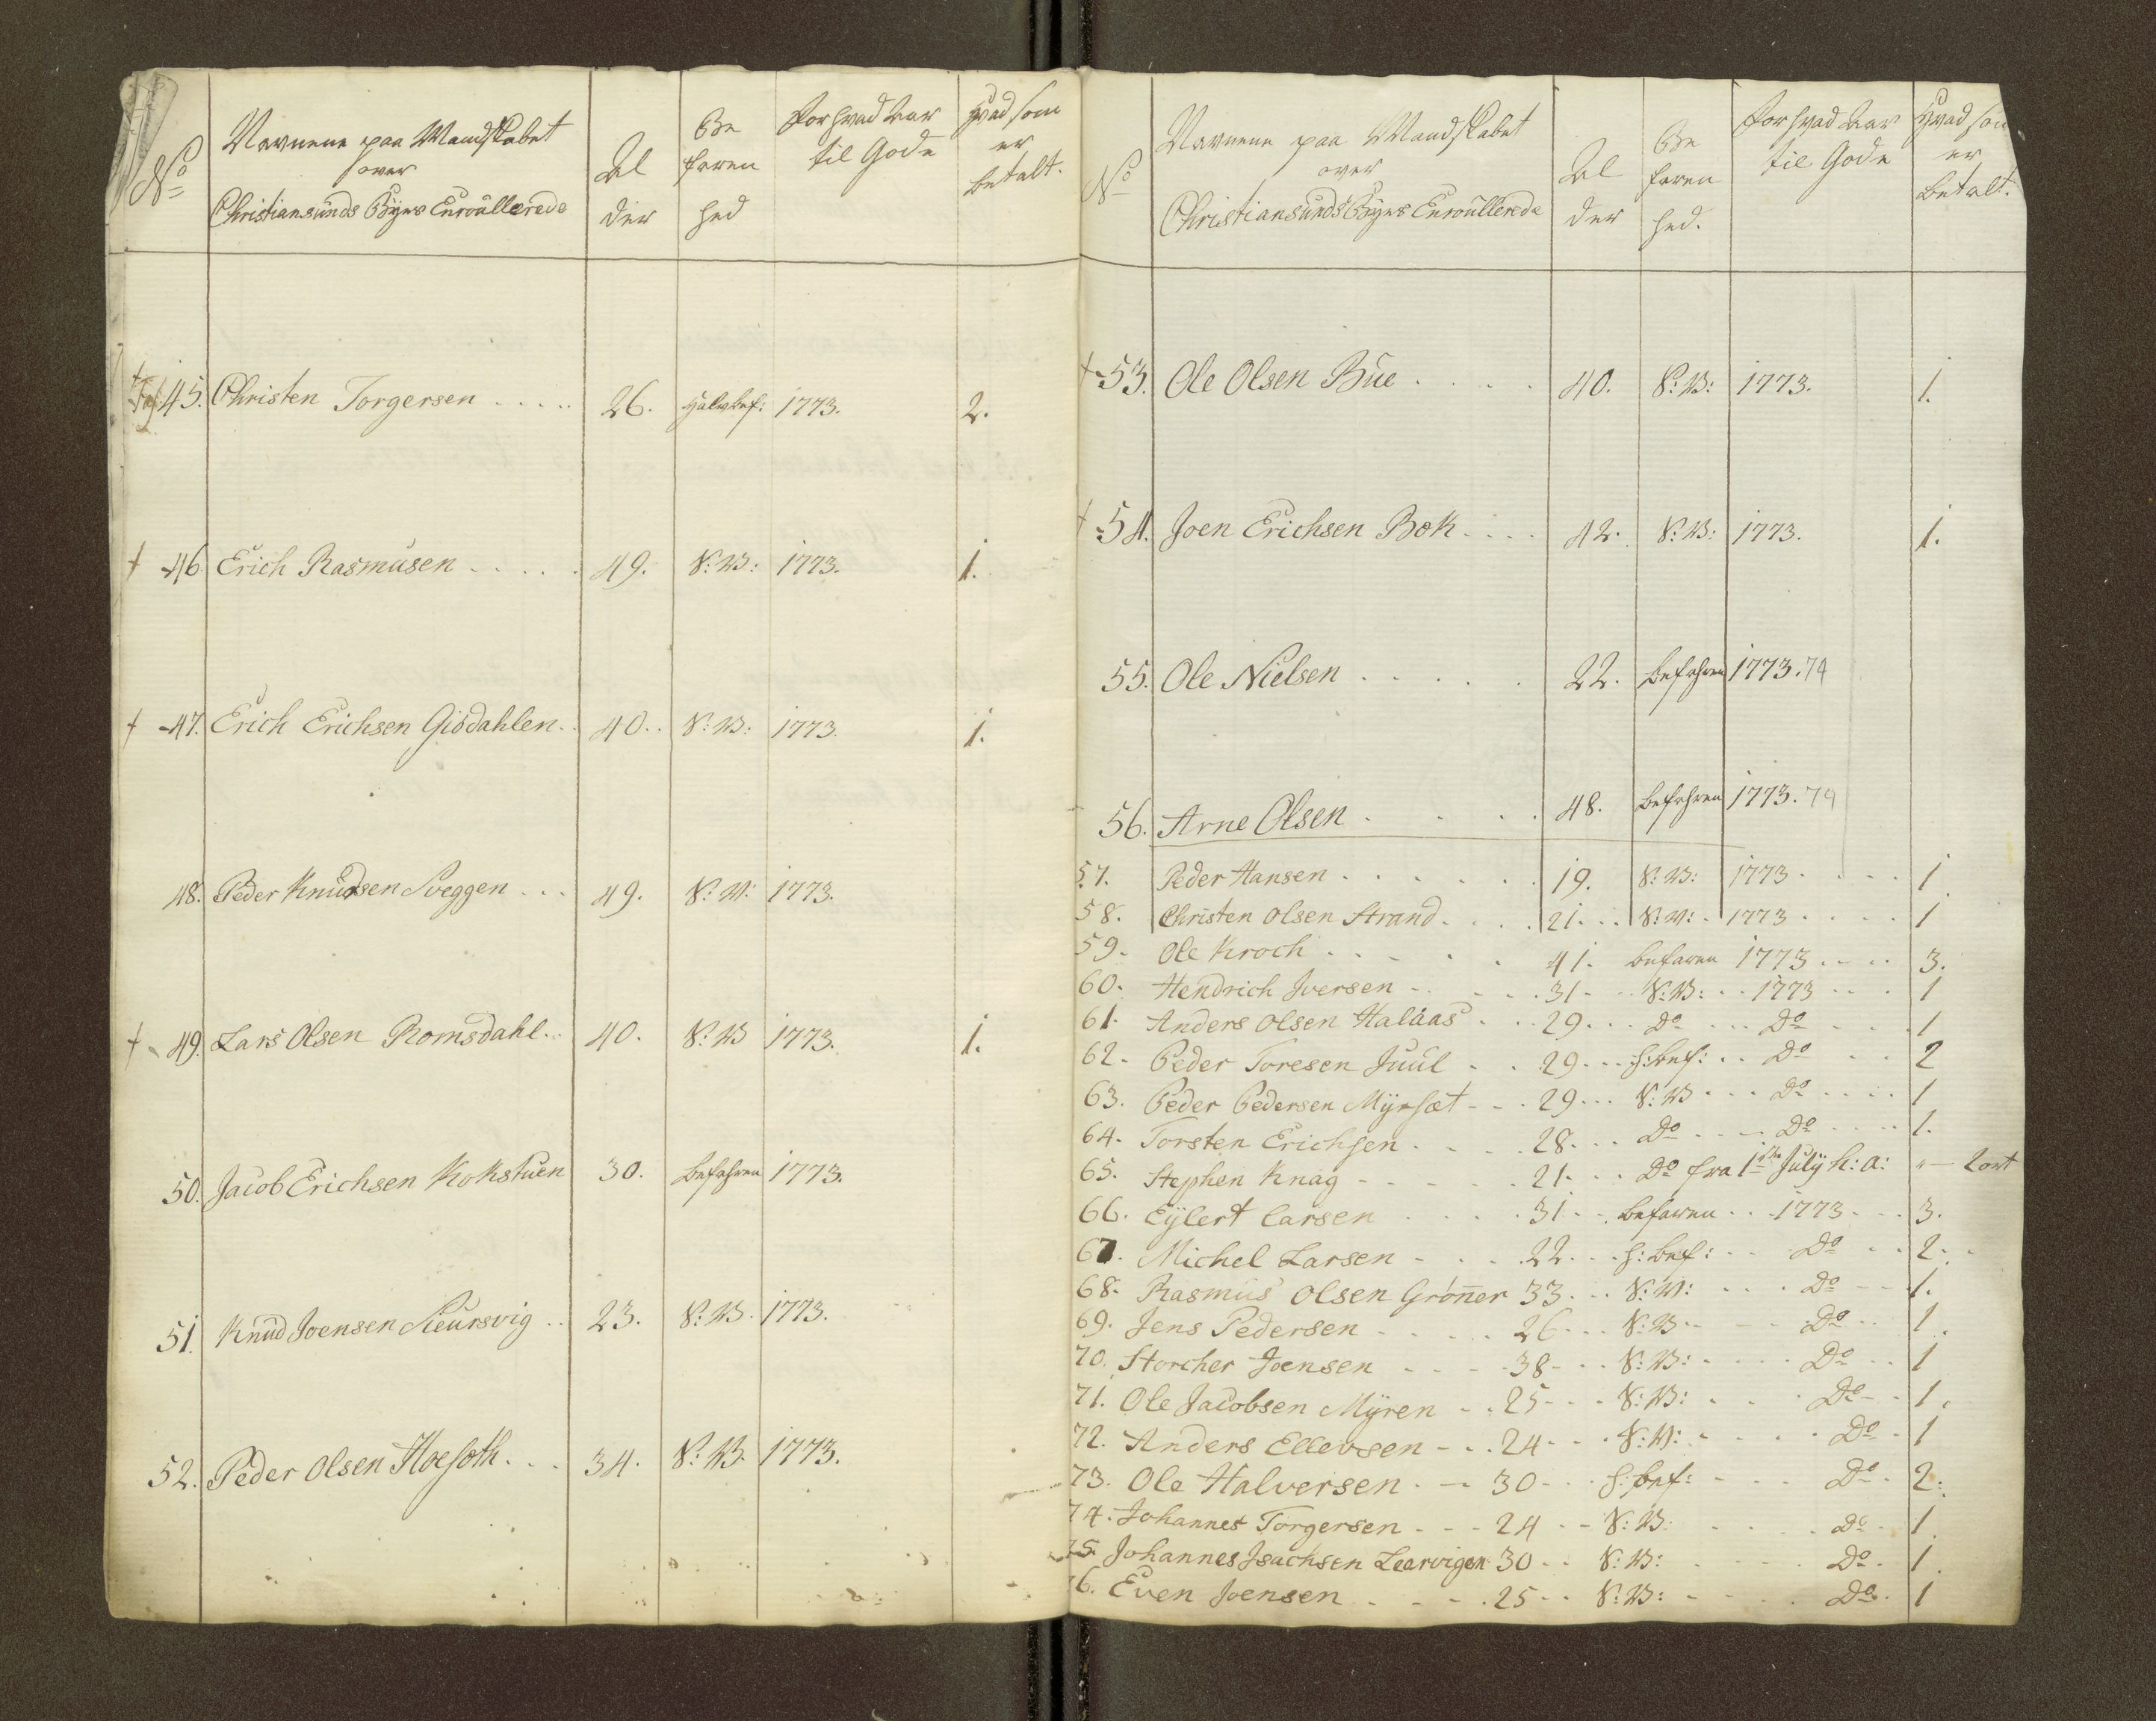 No
Navnene paa Mandskabet
over
Christiansunds Byes Enroullerede
Al
der
Be
faren
hed
For hvad Aar
til Gode
Hvad som
er
betalt.
45. Christen Torgersen . . . . . 26. Halvbef: 1773. 2.
† 46 Erich Rasmusen . . . . . 49. N: B: 1773. 1.
† 47. Erich Erichsen Giødahlen . . 40. . N: B: 1773. 1.
48. Peder Knudsen Sveggen . . . 49. N: B: 1773.
† 49. Lars Olsen Romsdahl . . 40. N: B 1773. 1.
50. Jacob Erichsen Kokstuen 30. befahren 1773.
51. Knud Joensen Sieursvig . . 23. N: B. 1773.
52. Peder Olsen Hoesøth . . . 34. N: B. 1773.
No
Navnene paa Mandskabet
over
Christiansunds Byes Enroullerede
Al
der
Be
faren
hed.
For hvad Aar
til Gode
Hvad som
er
betalt.
† 53. Ole Olsen Bue . . . . 40. N: B: 1773. 1.
† 54. Joen Erichsen Bøk . . . . 42. N: B: 1773. 1.
55. Ole Nielsen . . . . . 22. befahren 1773. 74
56. Arne Olsen . . . . 48. befahren 1773. 74
57. Peder Hansen . . . . . . 19. N: B: 1773 . . . . 1
58. Christen Olsen Strand . . . 21. . . N: B: . 1773 . . . . 1
59. Ole Kroch . . . . . 41. befaren 1773 . . . . 3.
60. Hendrich Iversen . . . . 31 . . N: B: . . 1773 . . . 1
61. Anders Olsen Halaas . . . 29 . . . Do . . . Do . . . . 1
62. Peder Toresen Juul . . 29 . . . h: bef: . . Do . . 2
63. Peder Pedersen Myrsæt . . . 29 . . . N: B . . . Do . . . . 1
64. Torsten Erichsen . . . . 28 . . . Do . . . . Do . . . . 1.
65. Stephen Knag . . . . . 21 . . . Do fra 1ste July h: a: " — 2 ort
66. Eylert Larsen . . . . 31 . . befaren . . . 1773 . . . 3.
67. Michel Larsen . . . . 22 . . . h: bef: . . . Do . . 2. .
68. Rasmus Olsen Grønner 33 . . . N: B: . . . . Do . . 1.
69. Jens Pedersen . . . . . 26 . . . N: B . . . . Do . . 1.
70. Storcher Joensen . . . . 38 . . . N: B: . . . . Do . . 1
71. Ole Jacobsen Myren . . . 25 . . . N: B: . . . Do . . 1.
72. Anders Ellevsen . . . 24 . . . N: B: . . . . . Do . 1
73. Ole Halversen . . . 30 . . . h: bef: . . . . Do . 2.
74. Johannes Torgersen . . . 24 . . N: B: . . . . Do . 1.
75. Johannes Isachsen Learvigen 30 . . N: B: . . . . Do . 1.
6. Even Joensen . . . . 25 . . N: B: . . . . Do . 1